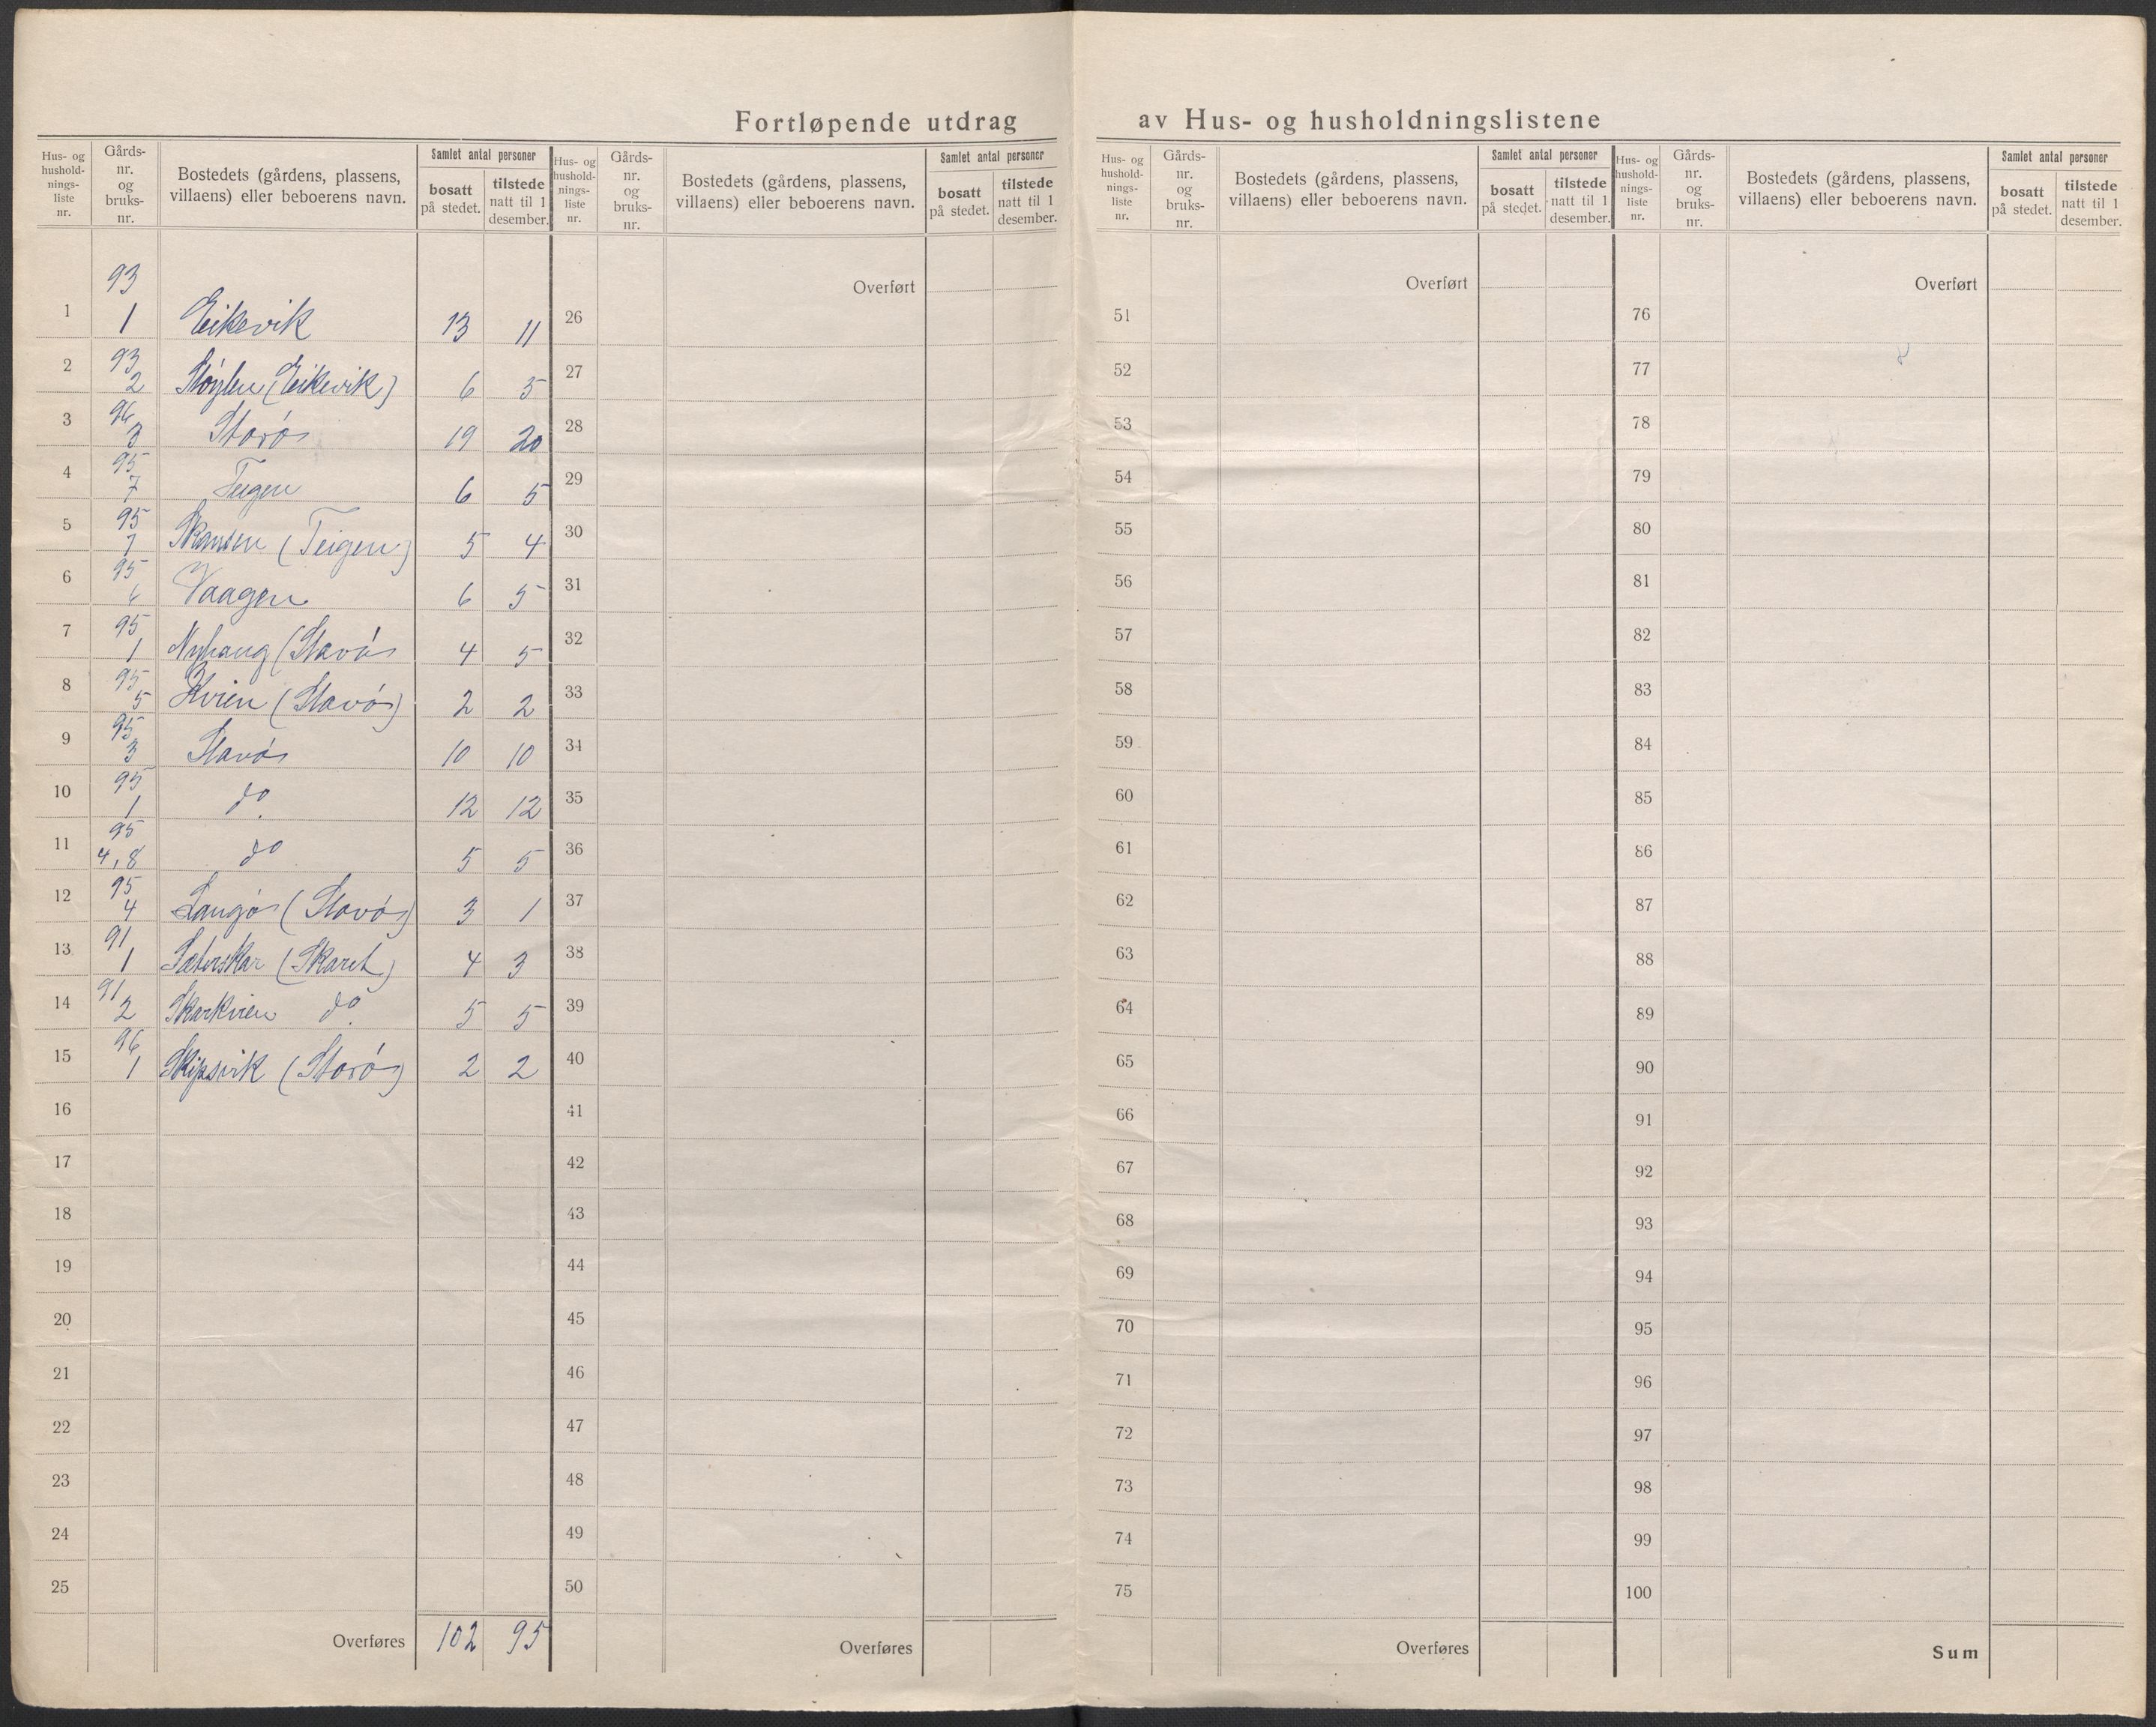 Fortløpende utdrag av Hus- og husholdningslistene
Hus- og hushold-nings-liste nr. Gårds-nr. og bruks-nr. Bostedets (gårdens, plassens, villaens) eller beboerens navn. Samlet antal personer bosatt på stedet. tilstede natt til 1 desember.
1 93 1 Eikevik 13 11
2 93 2 Støylen (Eikevik) 6 5
3 96 3 Storøs 19 20
4 95 7 Teigen 6 5
5 95 7 Skansen (Teigen) 5 4
6 95 6 Vaagen 6 5
7 95 1 Nyhaug (Stavøs 4 5
8 95 5 Kvien (Stavøs) 2 2
9 95 3 Stavøs 10 10
10 95 1 do. 12 12
11 95 4,8 do 5 5
12 95 4 Langøs (Stavøs) 3 1
13 91 1 Sæterskar (Skaret) 4 3
14 91 2 Skarkvien do. 5 5
15 96 1 Skipsvik (Storøs) 2 2
16
17
18
19
20
21
22
23
24
25
Overføres 102 95
Hus- og hushold-nings-liste nr. Gårds-nr. og bruks-nr. Bostedets (gårdens, plassens, villaens) eller beboerens navn. Samlet antal personer bosatt på stedet. tilstede natt til 1 desember.
Overført
26
27
28
29
30
31
32
33
34
35
36
37
38
39
40
41
42
43
44
45
46
47
48
49
50
Overføres
Hus- og hushold-nings-liste nr. Gårds-nr. og bruks-nr. Bostedets (gårdens, plassens, villaens) eller beboerens navn. Samlet antal personer bosatt på stedet. tilstede natt til 1 desember.
Overført
51
52
53
54
55
56
57
58
59
60
61
62
63
64
65
66
67
68
69
70
71
72
73
74
75
Overføres
Hus- og hushold-nings-liste nr. Gårds-nr. og bruks-nr. Bostedets (gårdens, plassens, villaens) eller beboerens navn. Samlet antal personer bosatt på stedet. tilstede natt til 1 desember.
Overført
76
77
78
79
80
81
82
83
84
85
86
87
88
89
90
91
92
93
94
95
96
97
98
99
100
Sum